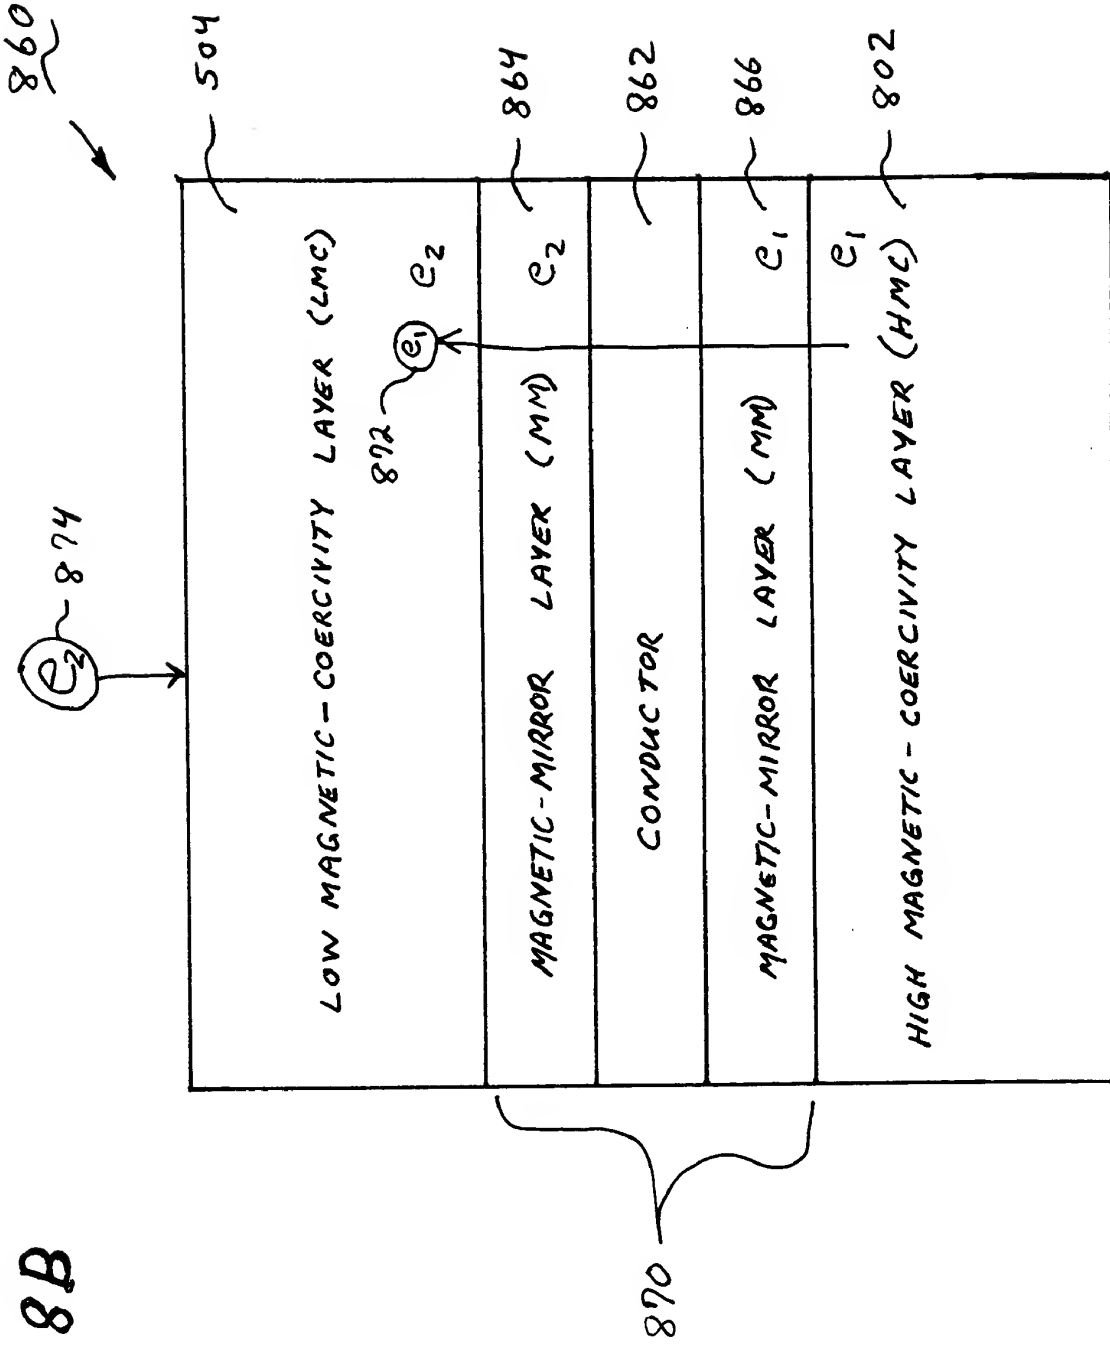 8B
860
e2 874
504
LOW MAGNETIC-COERCIVITY LAYER (LMC)
872 e1 e2
MAGNETIC-MIRROR LAYER (MM) e2
864
CONDUCTOR
862
MAGNETIC-MIRROR LAYER (MM) e1
866
e1
HIGH MAGNETIC-COERCIVITY LAYER (HMC)
802
870